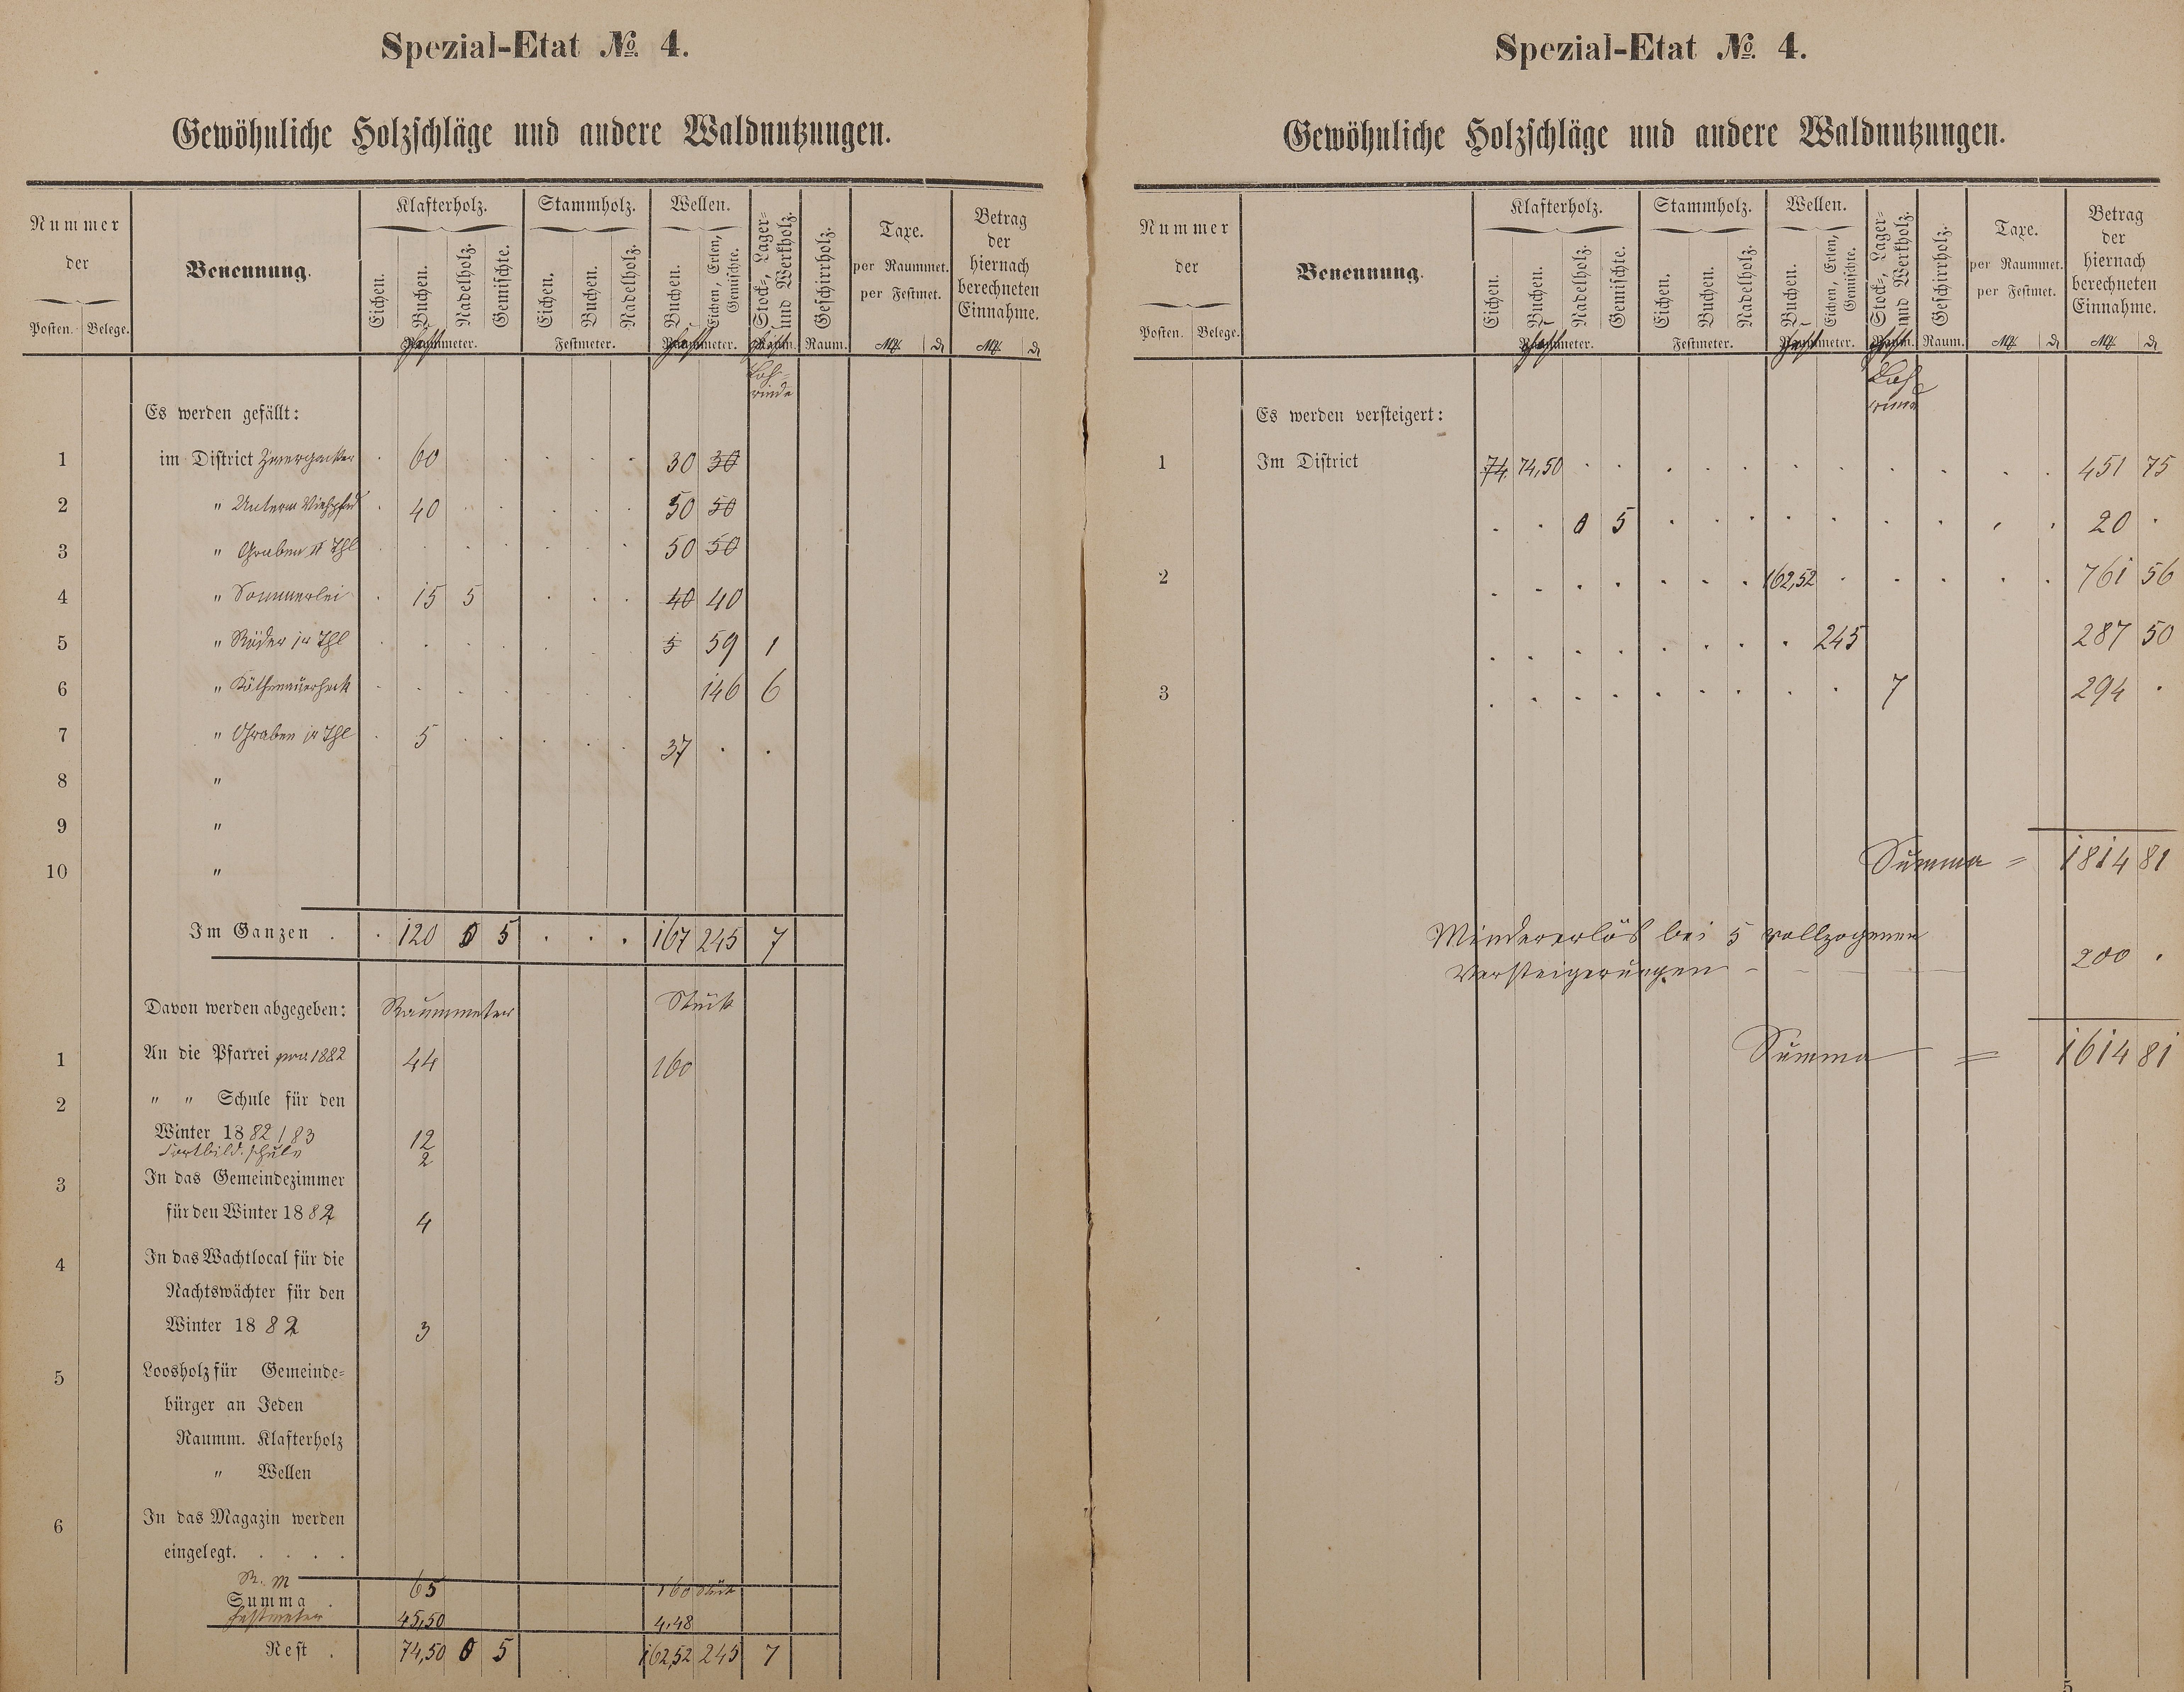 Spezial-Etat № 4.
Gewöhnliche Holzschläge und andere Waldnutzungen.
Nummer der
Posten. Belege.
Benennung.
Klafterholz.
Eichen. Buchen. Nadelholz. Gemischte.
Raummeter.
Stammholz.
Eichen. Buchen. Nadelholz.
Festmeter.
Wellen.
Buchen. Eichen, Erlen, Gemischte.
Raummeter.
Stock-, Lager- und Werkholz.
Raum.
Geschirrholz.
Raum.
Taxe.
per Raummet.
per Festmet.
M ₰
Betrag
der
hiernach
berechneten
Einnahme.
M ₰
Loh-
rinde
Es werden gefällt:
1 im District Zwergacker . 60 . . . . . 30 30
2 " Unterm Viehpfad . 40 . . . . . 50 50
3 " Graben Thl . . . . . . . 50 50
4 " Sommerlei . 15 5 . . . 40 40
5 " Röder 1r Thl . . . . . . . 5 59 1
6 " . . . . . . . 146 6
7 " Graben 1r Thl . 5 . . . . . 37 . .
8 "
9 "
10 "
Im Ganzen . . 120 0 5 . . . 167 245 7
Davon werden abgegeben: Raummeter Stück
1 An die Pfarrei pro 1882 44 160
2 " " Schule für den
Winter 1882/83 12
Fortbild. schule 2
3 In das Gemeindezimmer
für den Winter 1882 4
4 In das Wachtlocal für die
Nachtswächter für den
Winter 1882 3
5 Loosholz für Gemeinde-
bürger an Jeden
Raumm. Klafterholz
" Wellen
6 In das Magazin werden
eingelegt. . . . .
R. M
Summa . 65 160 Stück
Festmeter 45,50 4,48
Rest . 74,50 0 5 162,52 245 7
Spezial-Etat № 4.
Gewöhnliche Holzschläge und andere Waldnutzungen.
Nummer der
Posten. Belege.
Benennung.
Klafterholz.
Eichen. Buchen. Nadelholz. Gemischte.
Raummeter.
Stammholz.
Eichen. Buchen. Nadelholz.
Festmeter.
Wellen.
Buchen. Eichen, Erlen, Gemischte.
Raummeter.
Stock-, Lager- und Werkholz.
Raum.
Geschirrholz.
Raum.
Taxe.
per Raummet.
per Festmet.
M ₰
Betrag
der
hiernach
berechneten
Einnahme.
M ₰
Loh-
rinde
Es werden versteigert:
1 Im District 74. 74,50 . . . . . . . . . . . 451 75
. . 0 5 . . . . . . . . . 20 .
2 . . . . . . . 162,52 . . . . . 761 56
. . . . . . . . 245 287 50
3 . . . . . . . . . 7 294 .
Summa = 1814 81
Mindererlös bei 5 vollzogenen
Versteigerungen - - - 200 .
Summa = 1614 81
5